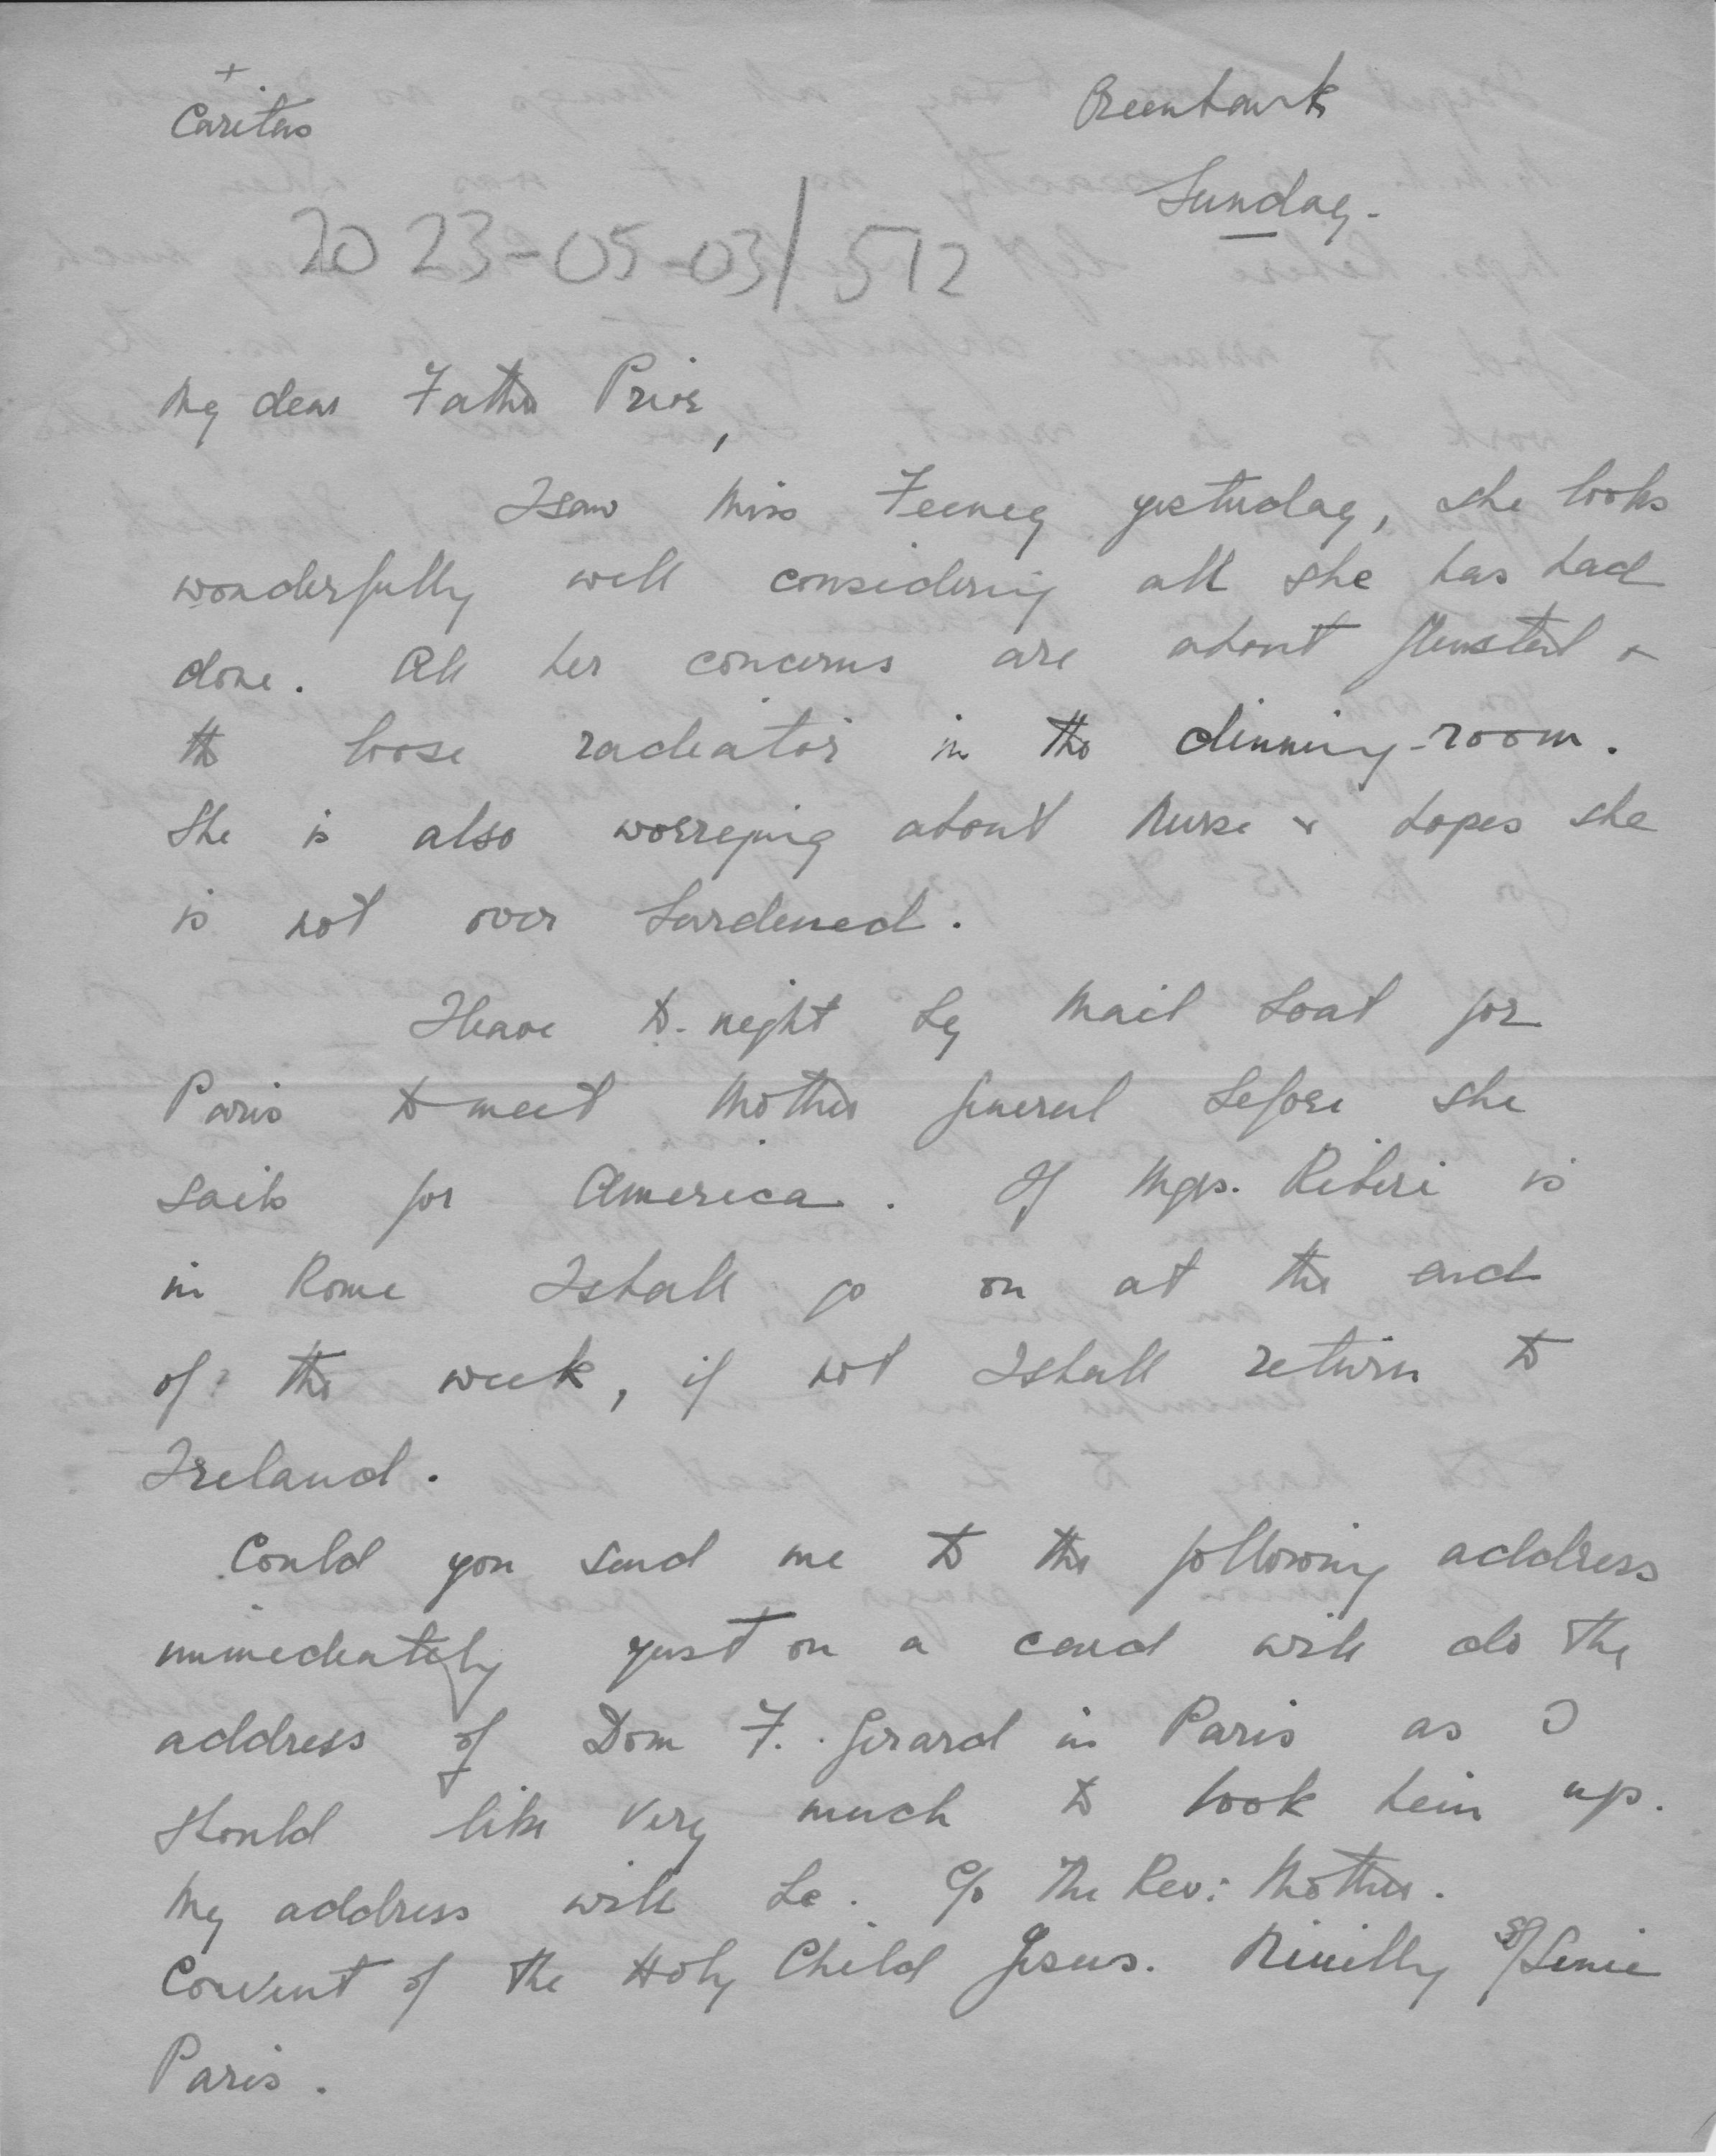 +
Caritas
Greenbank
Sunday.
2023-05-03/512
My dear Father Prior,
I saw Miss Feeney yesterday, she looks
wonderfully well considering all she has had
done. All her concerns are about Glenstal &
the loose radiator in the dinning-room.
She is also worrying about Nurse & hopes she
is not over burdened.
I leave to-night by Mail boat for
Paris to meet Mother General before she
sails for America. If Mgr. Riberi is
in Rome I shall go on at the end
of the week, if not I shall return to
Ireland.
Could you send me to the following address
immediately just on a card will do the
address of Dom F. Girard in Paris as I
should like very much to look him up.
My address will be. C/o The Rev: Mother.
Convent of the Holy Child Jesus. Neuilly s/Seine
Paris.